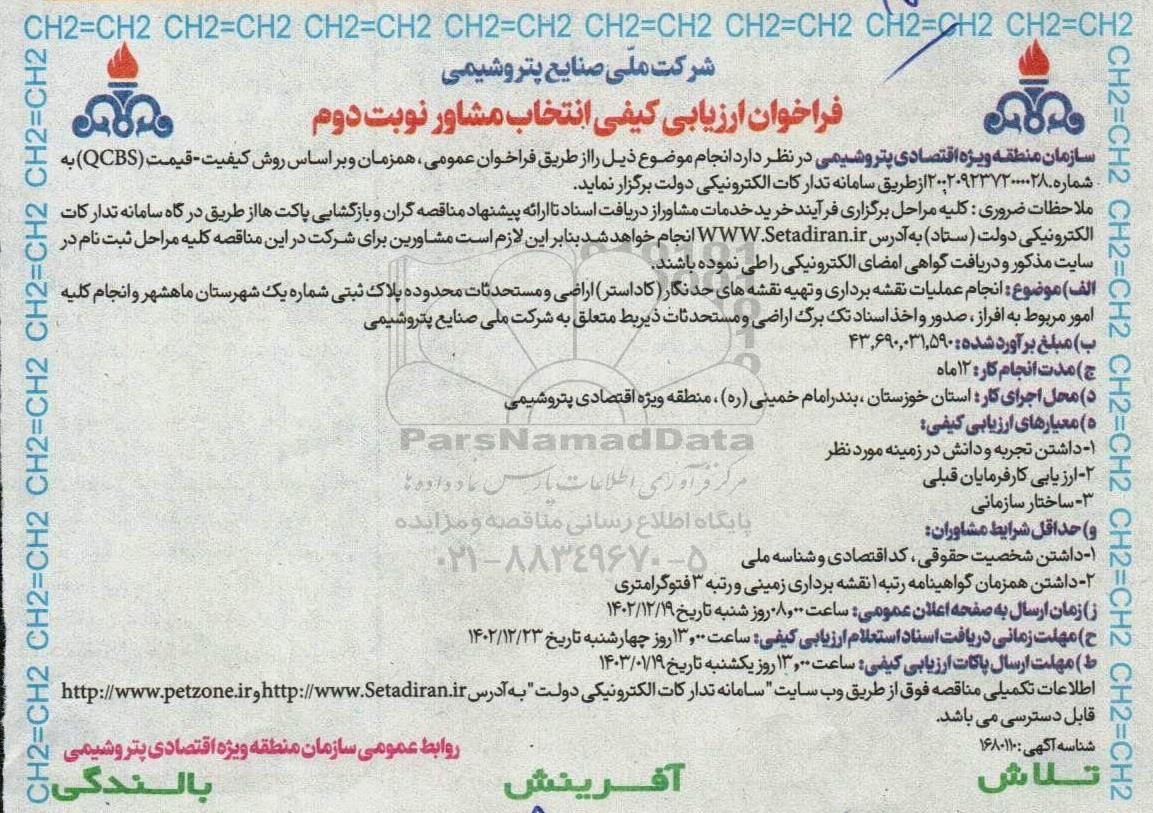 CH2=CH2 CH2=CH2 CH2=CH2 CH2=CH2 CH2=CH2 CH2=CH2 CH2=CH2 CH2=CH2
شرکت ملّی صنایع پتروشیمی
فراخوان ارزیابی کیفی انتخاب مشاور نوبت دوم
سازمان منطقه ویژه اقتصادی پتروشیمی در نظر دارد انجام موضوع ذیل را از طریق فراخوان عمومی، همزمان و بر اساس روش کیفیت-قیمت (QCBS) به
شماره ۲۰۰۲۰۹۲۳۷۲۰۰۰۰۲۸ از طریق سامانه تدارکات الکترونیکی دولت برگزار نماید.
ملاحظات ضروری: کلیه مراحل برگزاری فرآیند خرید خدمات مشاور از دریافت اسناد تا ارائه پیشنهاد مناقصه گران و بازگشایی پاکت ها از طریق درگاه سامانه تدارکات
الکترونیکی دولت (ستاد) به آدرس WWW.Setadiran.ir انجام خواهد شد بنابر این لازم است مشاورین برای شرکت در این مناقصه کلیه مراحل ثبت نام در
سایت مذکور و دریافت گواهی امضای الکترونیکی را طی نموده باشند.
الف) موضوع: انجام عملیات نقشه برداری و تهیه نقشه های حدنگار (کاداستر) اراضی و مستحدثات محدوده پلاک ثبتی شماره یک شهرستان ماهشهر و انجام کلیه
امور مربوط به افراز، صدور و اخذ اسناد تک برگ اراضی و مستحدثات ذیربط متعلق به شرکت ملی صنایع پتروشیمی
ب) مبلغ برآورد شده: ۴۳,۶۹۰,۰۳۱,۵۹۰
ج) مدت انجام کار: ۱۲ ماه
د) محل اجرای کار: استان خوزستان، بندر امام خمینی (ره)، منطقه ویژه اقتصادی پتروشیمی
ه) معیارهای ارزیابی کیفی:
۱- داشتن تجربه و دانش در زمینه مورد نظر
۲- ارزیابی کارفرمایان قبلی
۳- ساختار سازمانی
و) حداقل شرایط مشاوران:
۱- داشتن شخصیت حقوقی، کد اقتصادی و شناسه ملی
۲- داشتن همزمان گواهینامه رتبه ۱ نقشه برداری زمینی و رتبه ۳ فتوگرامتری
ز) زمان ارسال به صفحه اعلان عمومی: ساعت ۰۸,۰۰ روز شنبه تاریخ ۱۴۰۲/۱۲/۱۹
ح) مهلت زمانی دریافت اسناد استعلام ارزیابی کیفی: ساعت ۱۳,۰۰ روز چهارشنبه تاریخ ۱۴۰۲/۱۲/۲۳
ط) مهلت ارسال پاکات ارزیابی کیفی: ساعت ۱۳,۰۰ روز یکشنبه تاریخ ۱۴۰۳/۰۱/۱۹
اطلاعات تکمیلی مناقصه فوق از طریق وب سایت "سامانه تدارکات الکترونیکی دولت" به آدرس http://www.Setadiran.ir و http://www.petzone.ir
قابل دسترسی می باشد.
شناسه آگهی: ۱۶۸۰۱۱۰
روابط عمومی سازمان منطقه ویژه اقتصادی پتروشیمی
تلاش آفرینش بالندگی
ParsNamadData
مرکز فرآوری اطلاعات پارس نماد داده ها
پایگاه اطلاع رسانی مناقصه و مزایده
۰۲۱-۸۸۳۴۹۶۷۰-۵